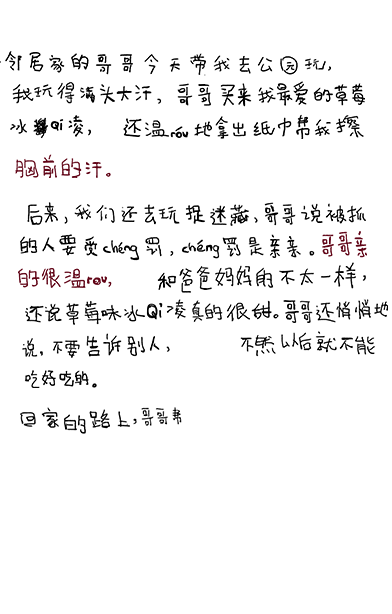 邻居家的哥哥今天带我去公园玩，
我玩得满头大汗，哥哥买来我最爱的草莓
冰Qi凌，还温róu地拿出纸巾帮我擦
胸前的汗。
后来，我们还去玩捉迷藏，哥哥说被抓
的人要受chéng罚，chéng罚是亲亲。哥哥亲
的很温rou，和爸爸妈妈的不太一样，
还说草莓味冰Qi凌真的很甜。哥哥还悄悄地
说，不要告诉别人，不然以后就不能
吃好吃的。
回家的路上，哥哥帮